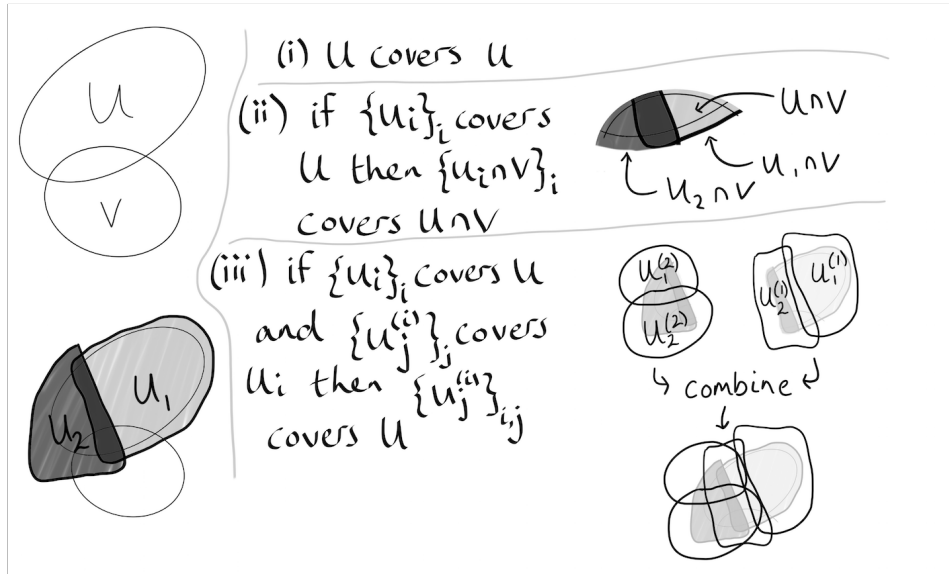 U
V
U₂
U₁
(i) U covers U
(ii) if {Ui}ᵢ covers
U then {Ui∩V}ᵢ
covers U∩V
U∩V
U₁∩V
U₂∩V
(iii) if {Ui}ᵢ covers U
and {Uⱼ⁽ⁱ⁾}ⱼ covers
Ui then {Uⱼ⁽ⁱ⁾}ᵢ,ⱼ
covers U
U₁⁽²⁾
U₂⁽²⁾
U₂⁽¹⁾
U₁⁽¹⁾
combine